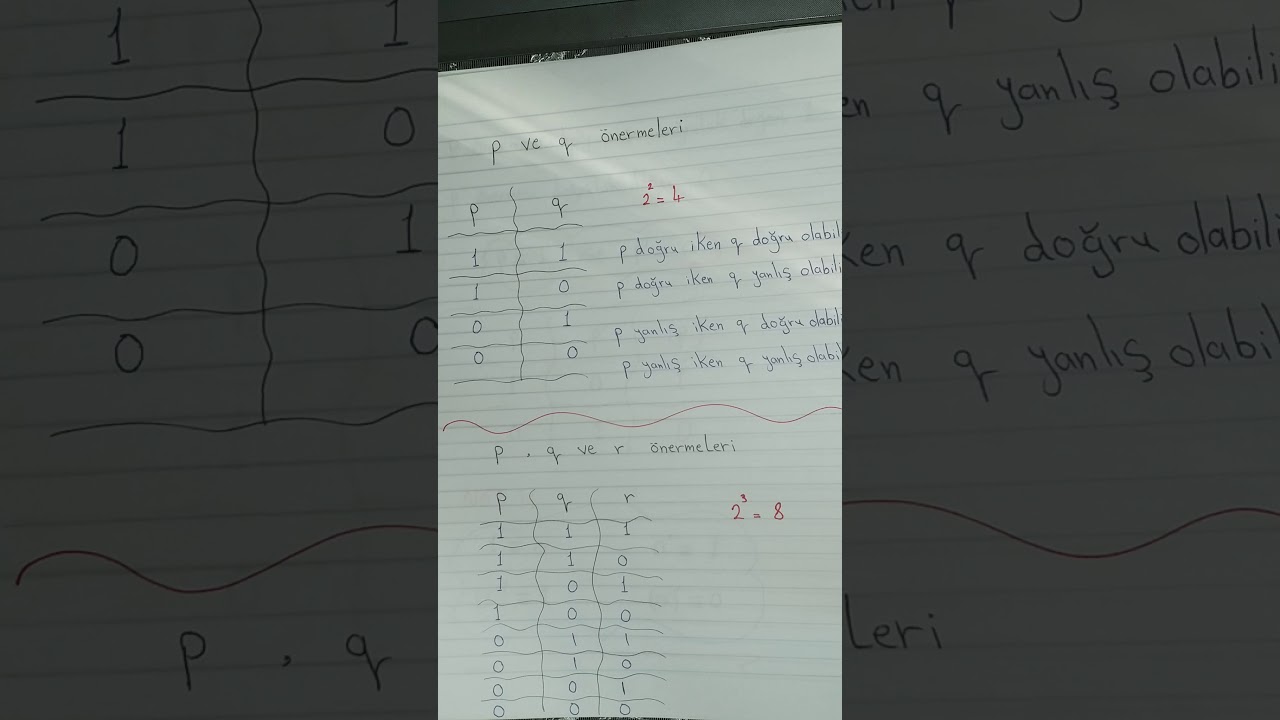 p ve q önermeleri
p q 2² = 4
1 1 p doğru iken q doğru olabil
1 0 p doğru iken q yanlış olabili
0 1 p yanlış iken q doğru olabili
0 0 p yanlış iken q yanlış olabil
p , q ve r önermeleri
p q r 2³ = 8
1 1 1
1 1 0
1 0 1
1 0 0
0 1 1
0 1 0
0 0 1
0 0 0